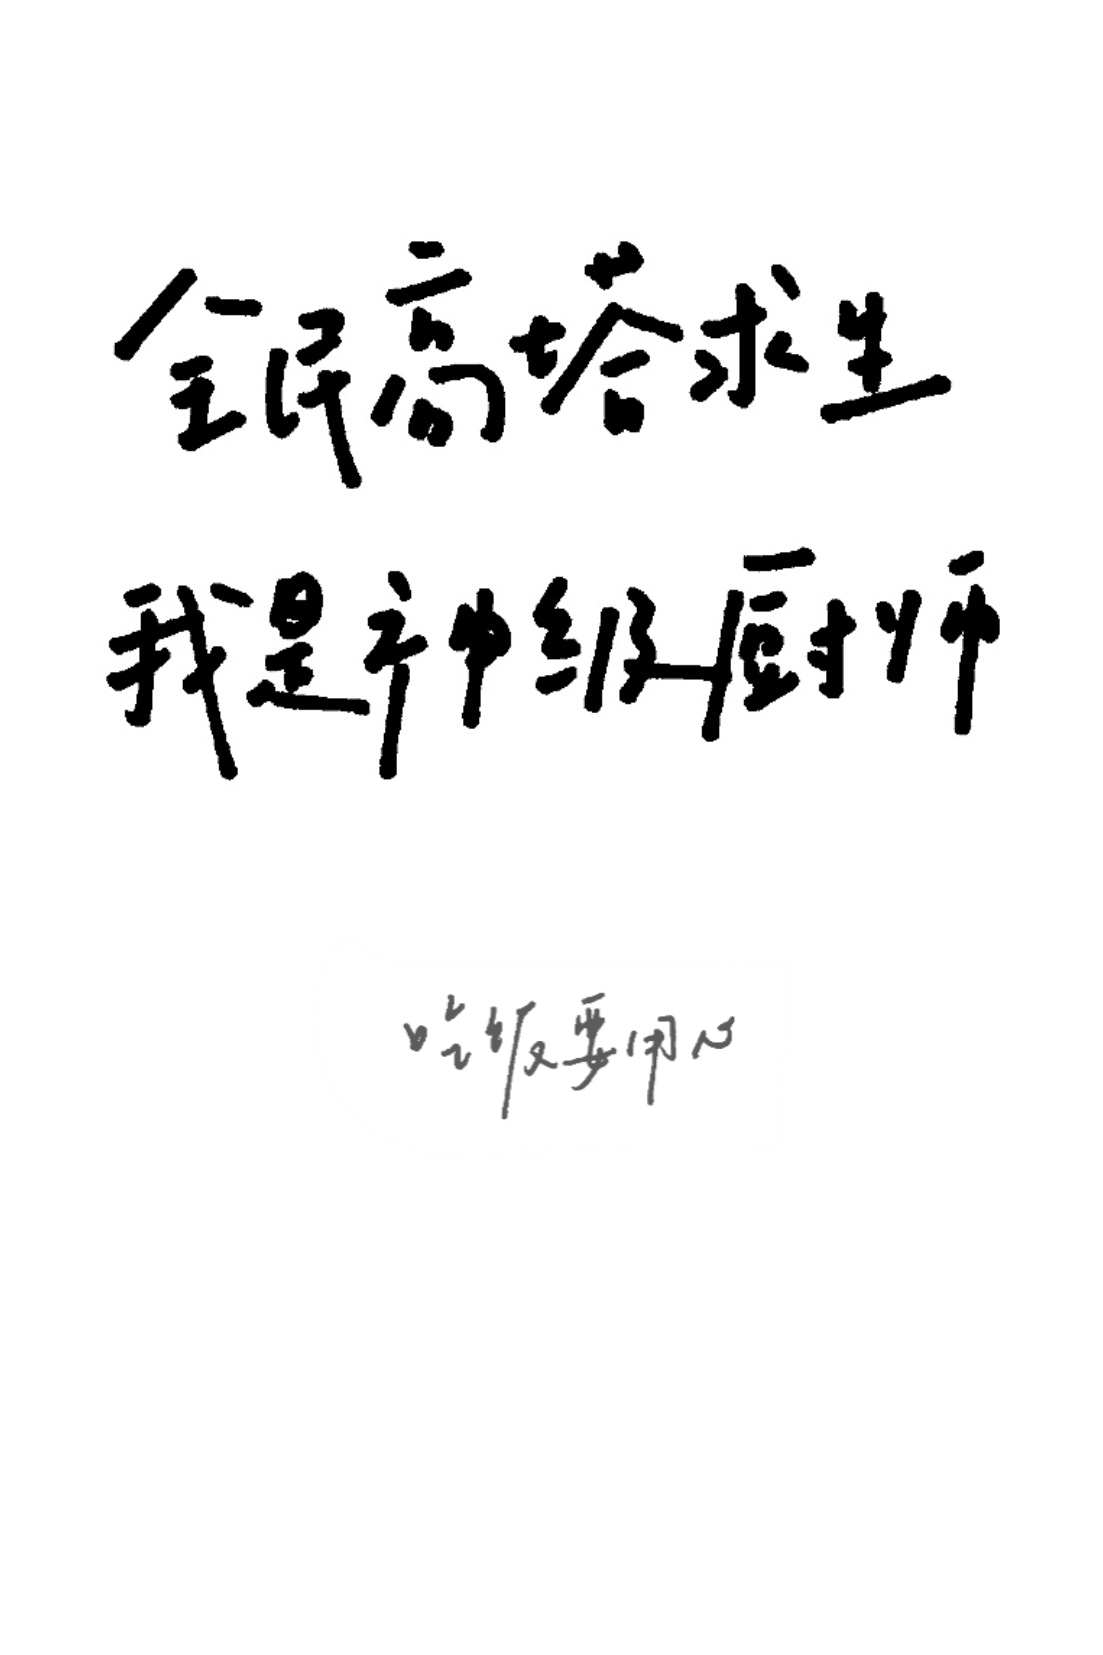 全民高塔求生
我是神级厨师
吃饭要用心